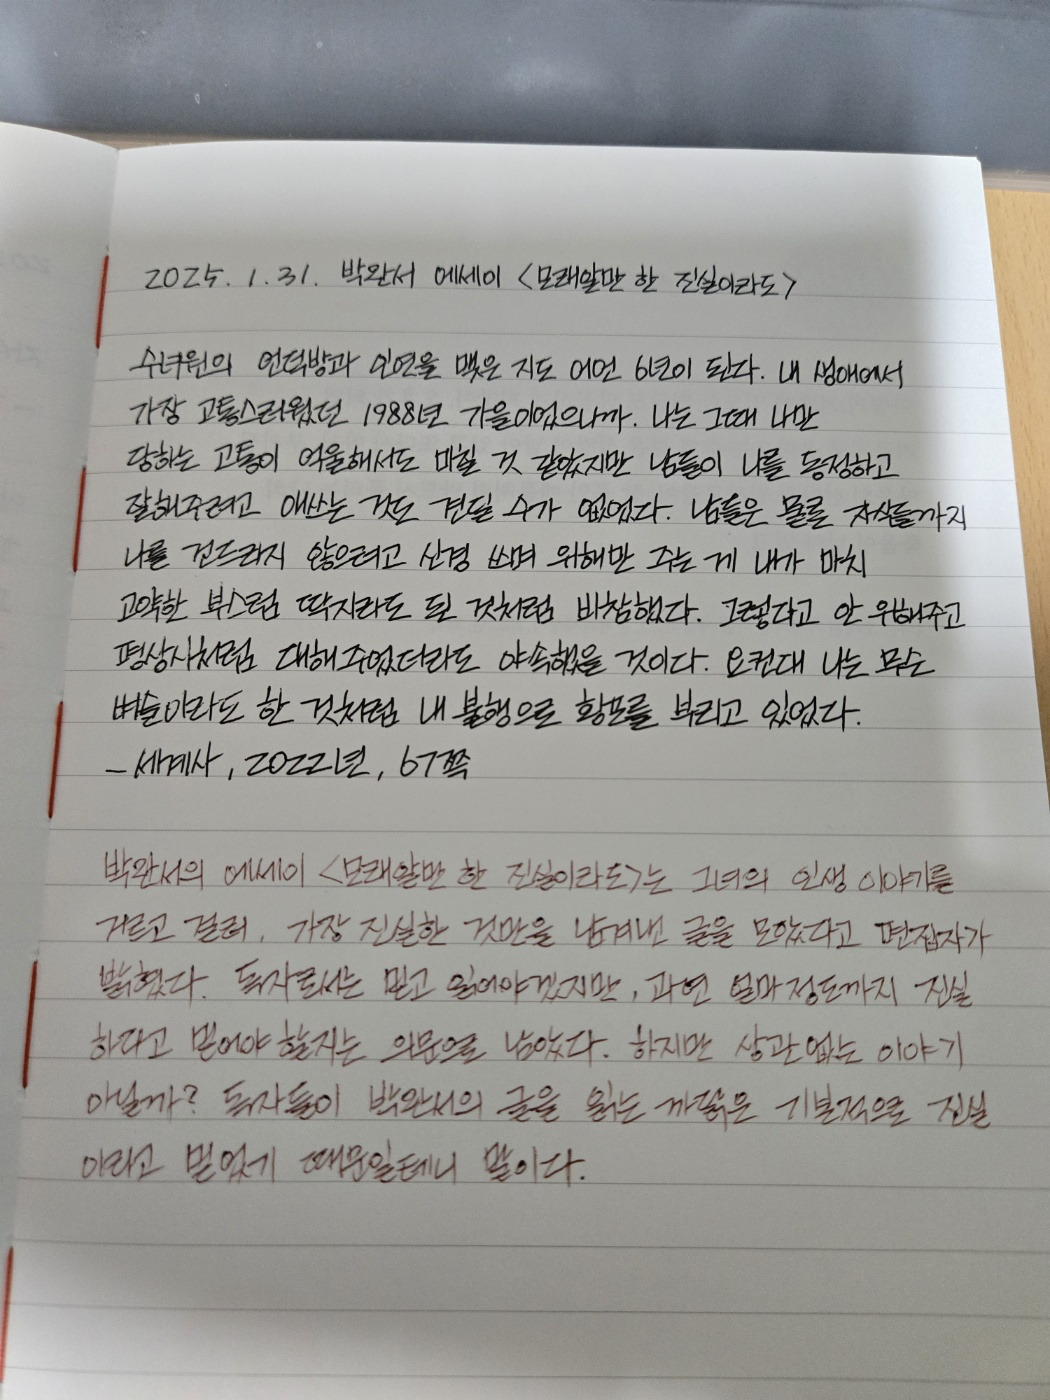 2025. 1. 31. 박완서 에세이 <모래알만 한 진실이라도>
수녀원의 언덕방과 인연을 맺은 지도 어언 6년이 된다. 내 생애에서
가장 고통스러웠던 1988년 가을이었으니까. 나는 그때 나만
당하는 고통이 억울해서도 미칠 것 같았지만 남들이 나를 동정하고
잘해주려고 애쓰는 것도 견딜 수가 없었다. 남들은 물론 자식들까지
나를 건드리지 않으려고 신경 쓰며 위해만 주는 게 내가 마치
고약한 부스럼 딱지라도 된 것처럼 비참했다. 그렇다고 안 위해주고
평상시처럼 대해주었더라도 야속했을 것이다. 요컨대 나는 무슨
벼슬이라도 한 것처럼 내 불행으로 횡포를 부리고 있었다.
– 세계사, 2022년, 67쪽
박완서의 에세이 <모래알만 한 진실이라도>는 그녀의 인생 이야기를
거르고 걸러, 가장 진실한 것만을 남겨낸 글을 모았다고 편집자가
밝혔다. 독자로서는 믿고 읽어야겠지만, 과연 얼마 정도까지 진실
하다고 믿어야 할지는 의문으로 남았다. 하지만 상관없는 이야기
아닐까? 독자들이 박완서의 글을 읽는 까닭은 기본적으로 진실
이라고 믿었기 때문일테니 말이다.